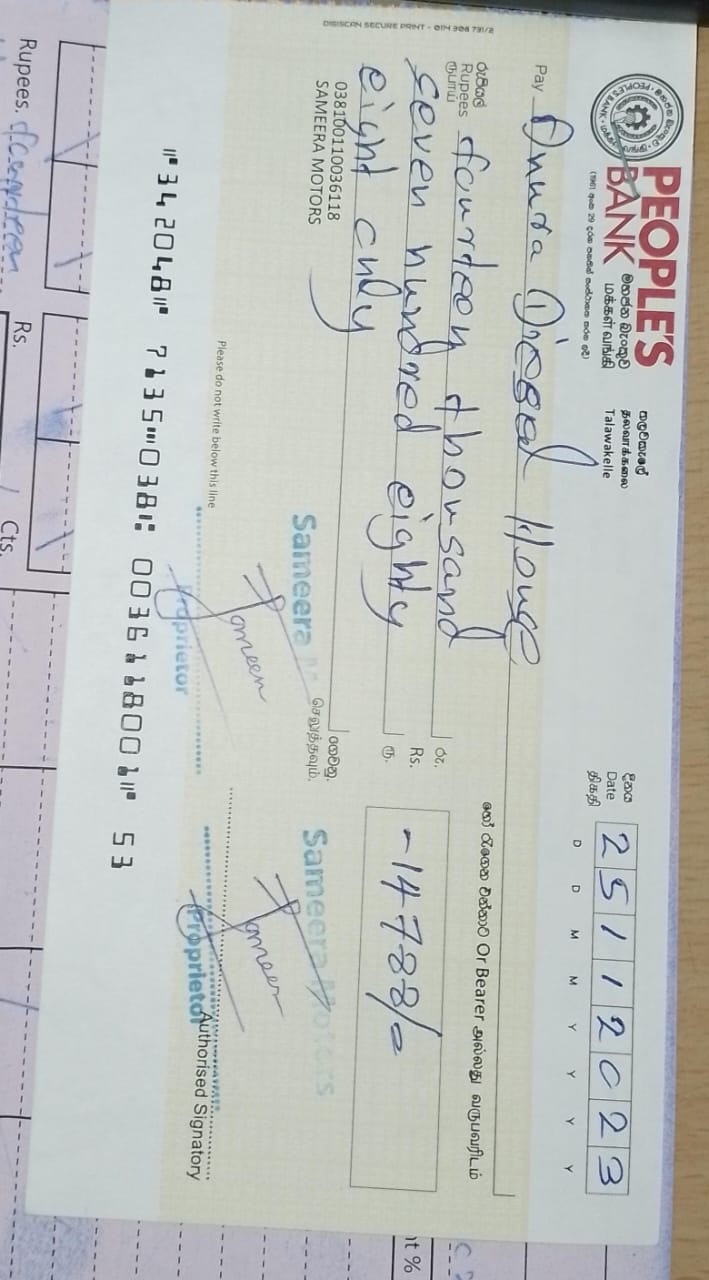 PEOPLE'S
BANK
මහජන බැංකුව
மக்கள் வங்கி
(1961 අංක 29 දරන පනතින් සංස්ථාගත කරන ලදී)
තලවකැලේ
தலவாக்கலை
Talawakelle
දිනය
Date
திகதி
2 5 1 1 2 0 2 3
D D M M Y Y Y Y
Pay Anura Diesel House
හෝ රැගෙන එන්නාට Or Bearer அல்லது வருபவரிடம்
රුපියල්
Rupees fourteen thousand
ரூபாய்
seven hundred eighty
eight only
රු.
Rs.
ரூ.
-14788/=
ගෙවනු.
செலுத்தவும்.
038100110036118
SAMEERA MOTORS
Sameera M
Sameera Motors
Proprietor
Proprietor
Authorised Signatory
Please do not write below this line
⑈342048⑈ 7135⑉038⑆ 0036118001⑈ 53
DIGISCAN SECURE PRINT - 0114 308 731/2
Rupees. fourteen
Rs.
Cts.
nt %